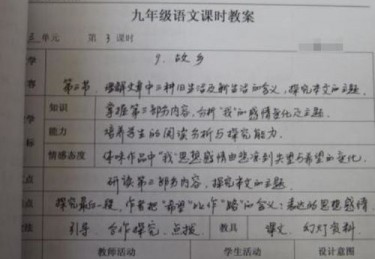 九年级语文课时教案
五单元 第3课时
学 9.故乡
容 第二节 理解文章中三种旧生活及新生活的含义,探究本文的主题.
学 知识 掌握第三部分内容,分析“我”的感情变化及主题.
能力 培养学生的阅读分析与探究能力.
标 情感态度 体味作品中“我”思想感情由悲凉到失望与希望的变化.
点 研读第三部分内容,探究本文的主题.
点 探究最后一段,作者把“希望”比作“路”的含义:表达的思想感情
法 引导 合作探究.点拨. 教具 课文.幻灯资料.
教师活动 学生活动 设计意图